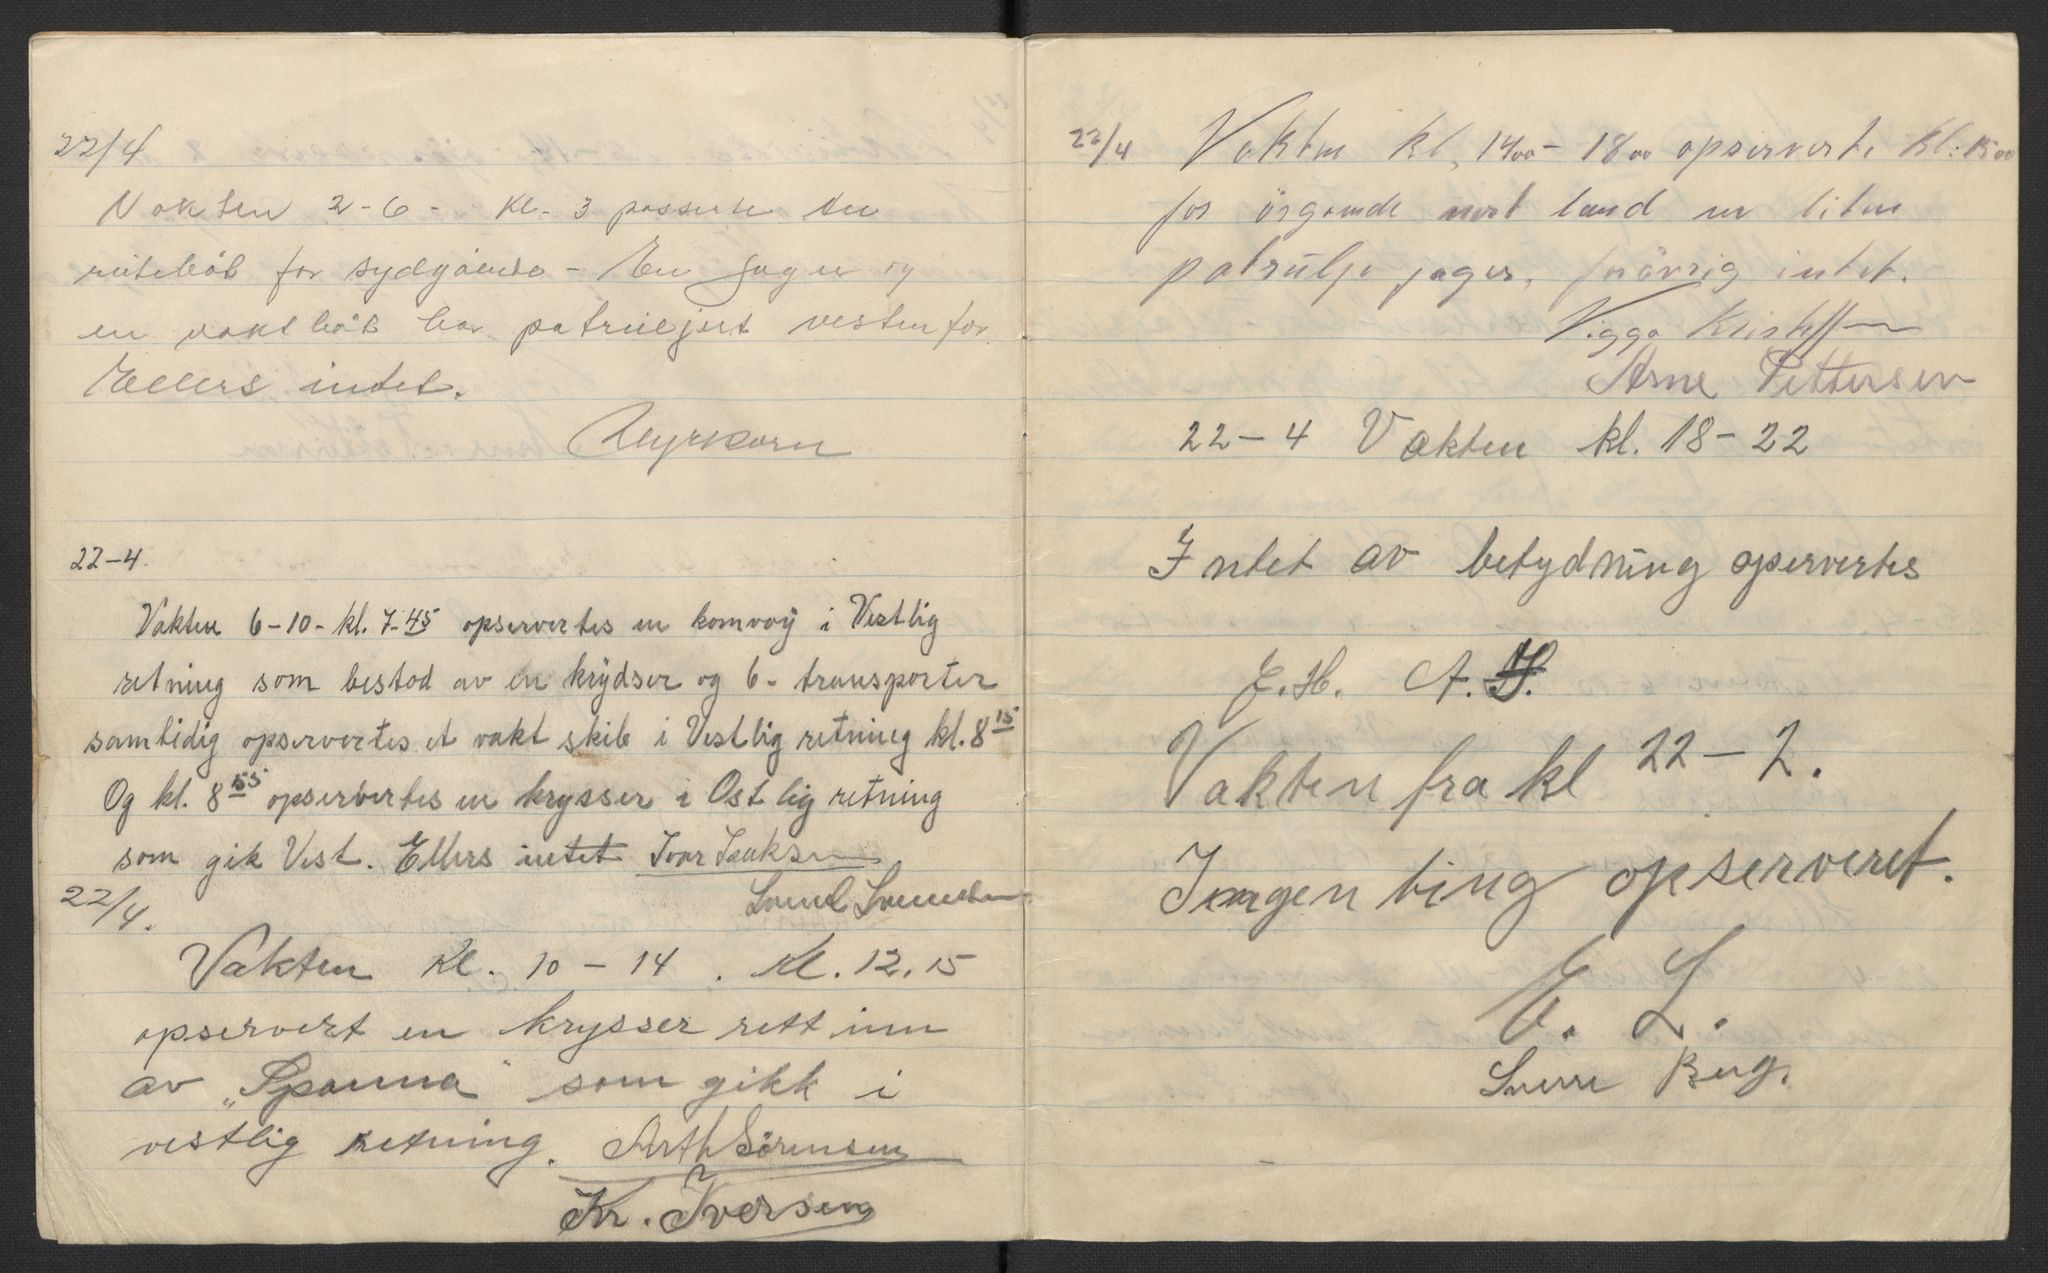 22/4
Vakten 2-6- Kl. 3 passerte en
rutebåt for sydgåendo - En Jager og
en vakt båt har patruljert vestenfor
Ellers intet.
Myrkorn
22-4.
Vakten 6-10- kl. 7-45 opservertes en komvoÿ i Vestlig
retning som bestod av en krÿdser og 6- transporter
samtidig opservertes et vakt skib i Vestlig retning kl. 8 15
Og kl. 8 55 opservertes en krysser i Ostlig retning
som gik Vest. Ellers intet Ivar Isaksen
22/4.
Vakten Kl. 10-14. Kl. 12,15
opservert en krysser rett inn
av „Spanna" som gikk i
vestlig retning. Arth Sörensen
Kr. Iversen
22/4 Vakten kl, 1400- 1800 opserverte kl: 1500
for örgående mot land en liten
patrulje jager, forövrig intet.
Viggo Kristoffersen
Arne Pettersen
22-4 Vakten kl. 18-22
Intet av betydning opservertes
J.H. A.H.
Vakten fra kl 22-2.
Ingen ting opserveret.
E. L.
Sverre Berg.